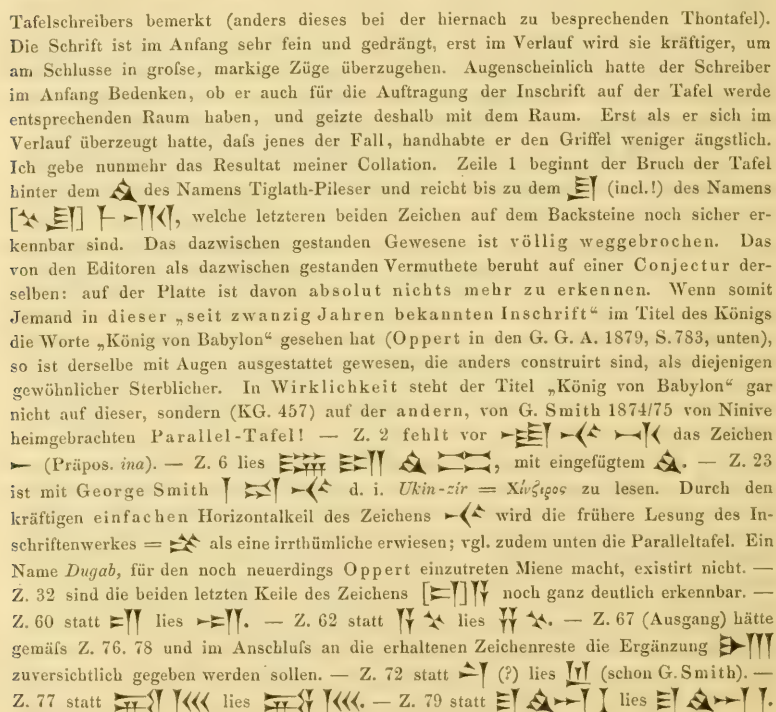 Tafelschreibers bemerkt (anders dieses bei der hiernach zu besprechenden Thontafel).
Die Schrift ist im Anfang sehr fein und gedrängt, erst im Verlauf wird sie kräftiger, um
am Schlusse in grofse, markige Züge überzugehen. Augenscheinlich hatte der Schreiber
im Anfang Bedenken, ob er auch für die Auftragung der Inschrift auf der Tafel werde
entsprechenden Raum haben, und geizte deshalb mit dem Raum. Erst als er sich im
Verlauf überzeugt hatte, dafs jenes der Fall, handhabte er den Griffel weniger ängstlich.
Ich gebe nunmehr das Resultat meiner Collation. Zeile 1 beginnt der Bruch der Tafel
hinter dem des Namens Tiglath-Pileser und reicht bis zu dem (incl.!) des Namens
[ ] , welche letzteren beiden Zeichen auf dem Backsteine noch sicher er-
kennbar sind. Das dazwischen gestanden Gewesene ist völlig weggebrochen. Das
von den Editoren als dazwischen gestanden Vermuthete beruht auf einer Conjectur der-
selben: auf der Platte ist davon absolut nichts mehr zu erkennen. Wenn somit
Jemand in dieser „seit zwanzig Jahren bekannten Inschrift“ im Titel des Königs
die Worte „König von Babylon“ gesehen hat (Oppert in den G. G. A. 1879, S. 783, unten),
so ist derselbe mit Augen ausgestattet gewesen, die anders construirt sind, als diejenigen
gewöhnlicher Sterblicher. In Wirklichkeit steht der Titel „König von Babylon“ gar
nicht auf dieser, sondern (KG. 457) auf der andern, von G. Smith 1874/75 von Ninive
heimgebrachten Parallel-Tafel! — Z. 2 fehlt vor das Zeichen
(Präpos. ina). — Z. 6 lies , mit eingefügtem . — Z. 23
ist mit George Smith d. i. Ukin-zir = Χίνζιρος zu lesen. Durch den
kräftigen einfachen Horizontalkeil des Zeichens wird die frühere Lesung des In-
schriftenwerkes = als eine irrthümliche erwiesen; vgl. zudem unten die Paralleltafel. Ein
Name Dugab, für den noch neuerdings Oppert einzutreten Miene macht, existirt nicht. —
Z. 32 sind die beiden letzten Keile des Zeichens [ ] noch ganz deutlich erkennbar. —
Z. 60 statt lies . — Z. 62 statt lies . — Z. 67 (Ausgang) hätte
gemäfs Z. 76. 78 und im Anschlufs an die erhaltenen Zeichenreste die Ergänzung
zuversichtlich gegeben werden sollen. — Z. 72 statt (?) lies (schon G. Smith). —
Z. 77 statt lies . — Z. 79 statt lies .